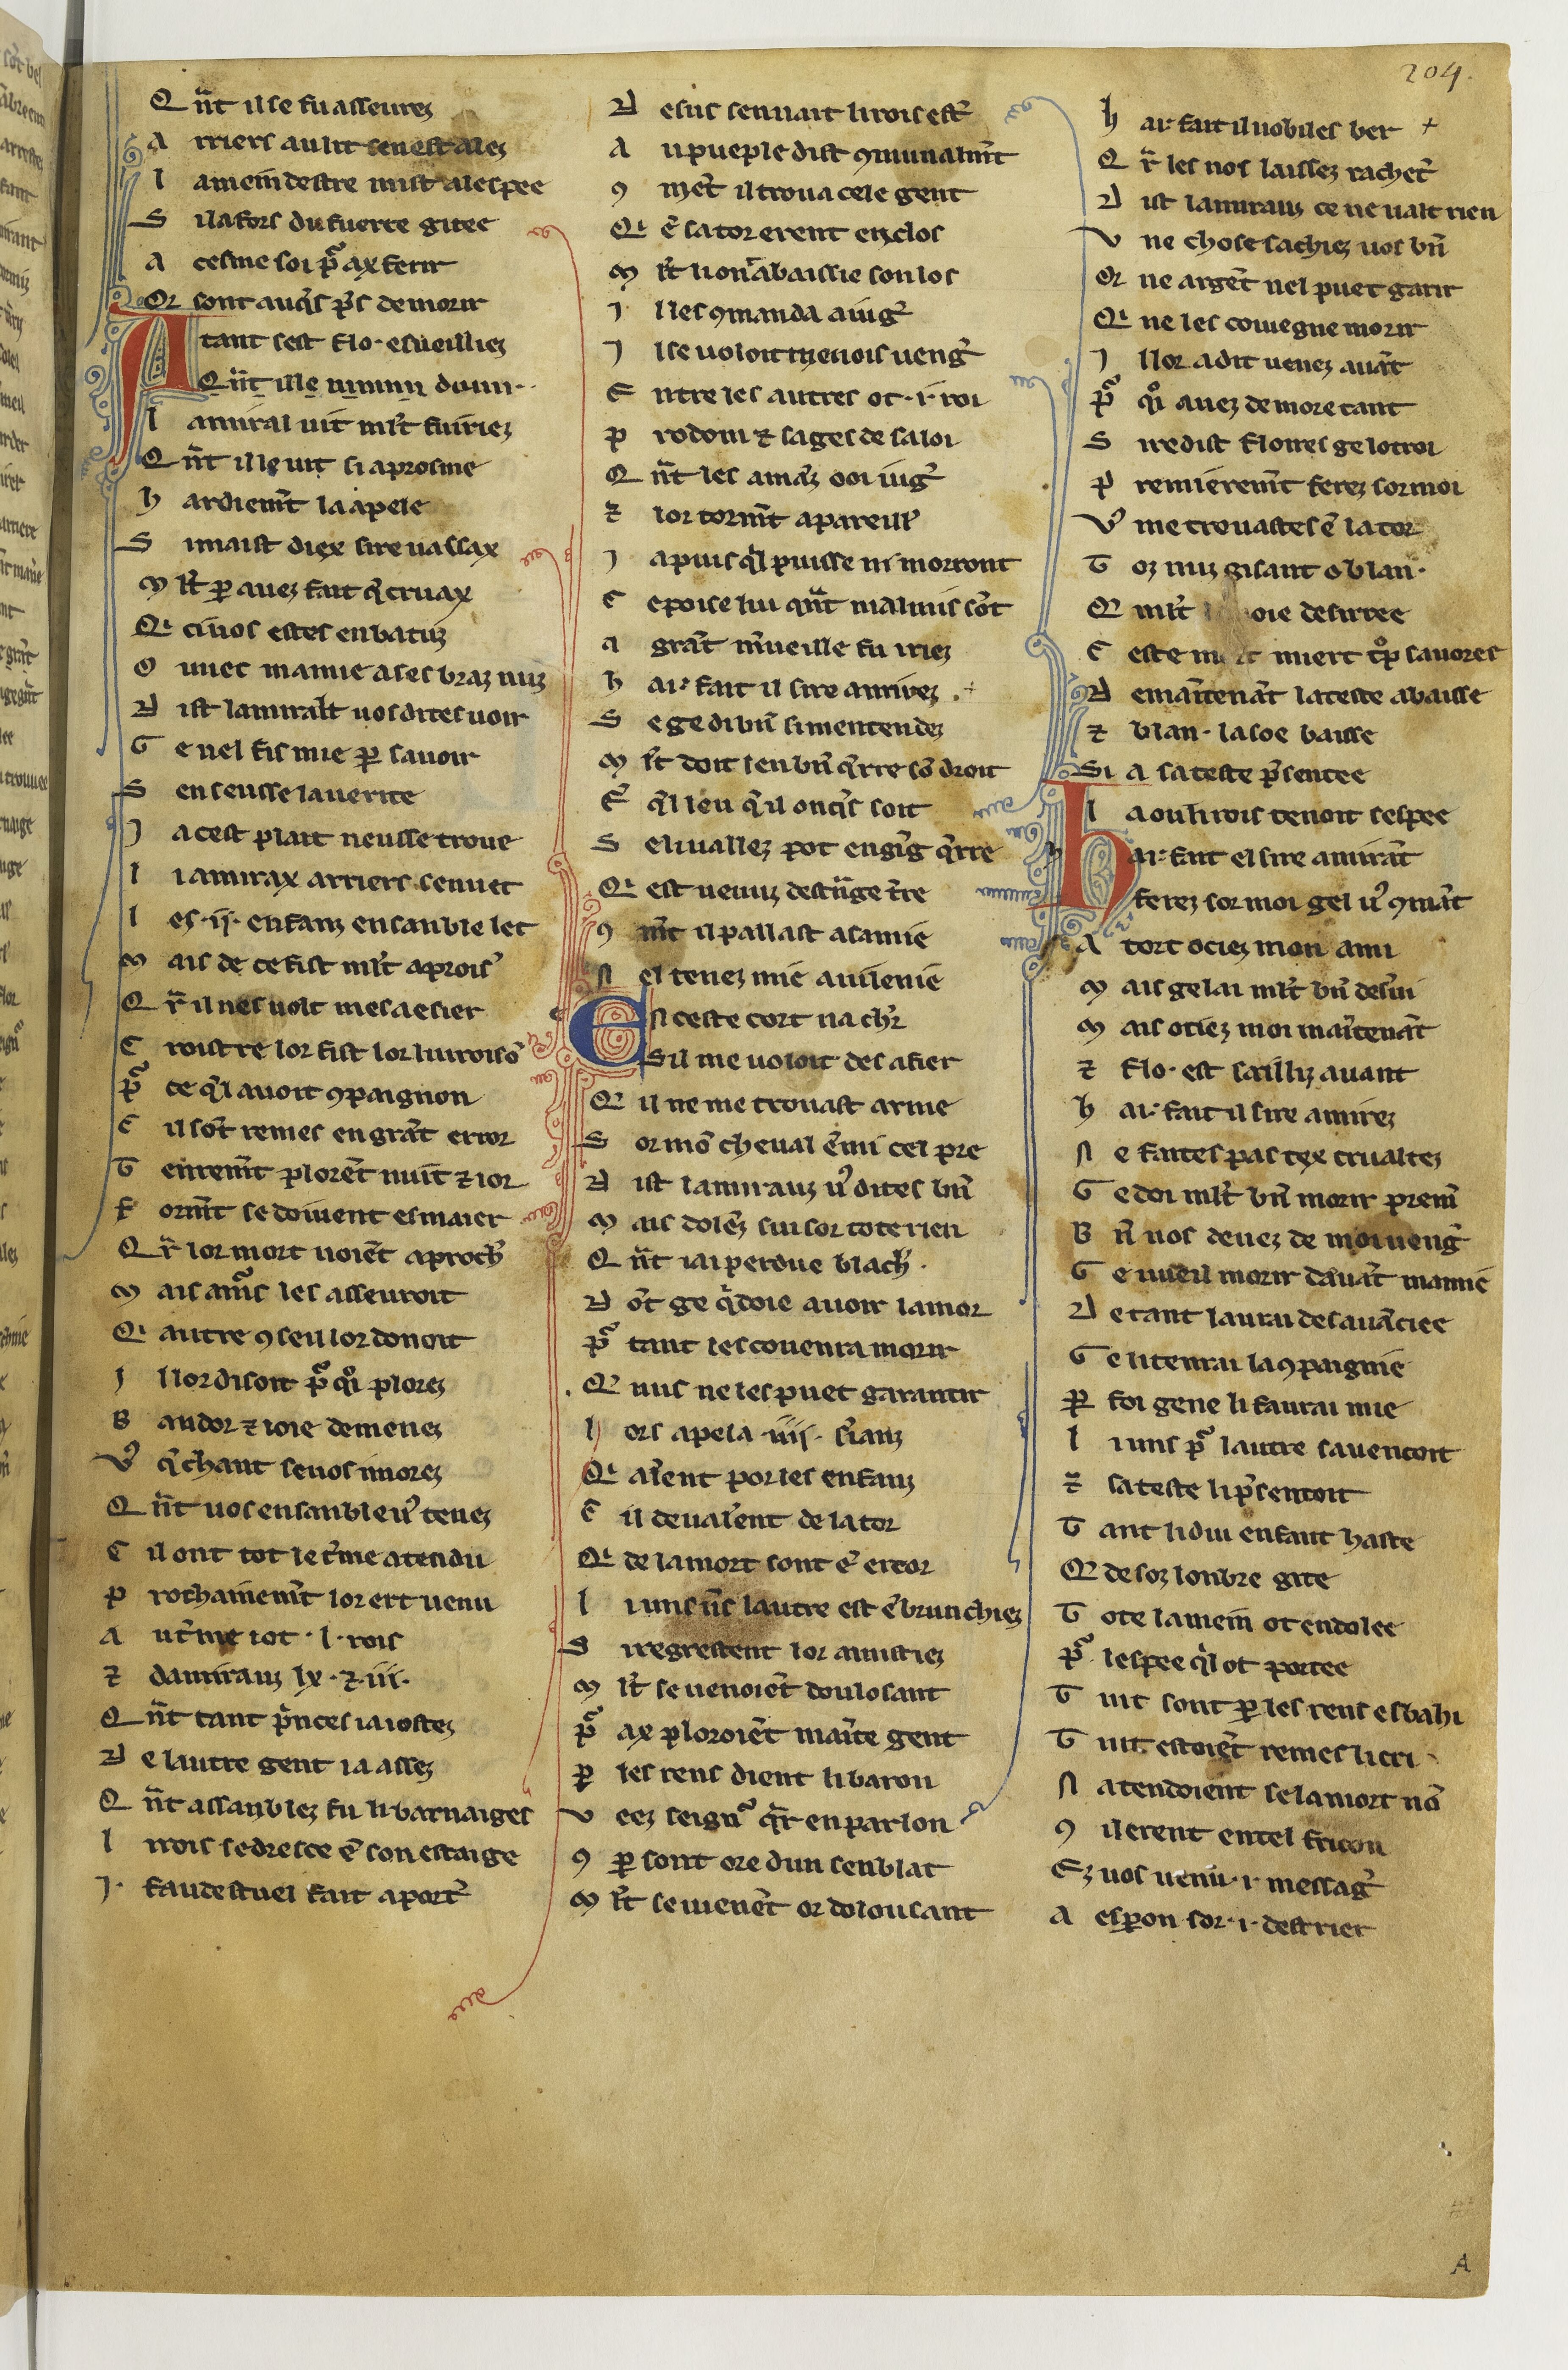 204.
Q ñt il se fu asseurez
A rriers au lit sen est alez
L a mein destre mist a lespee
S i la fors du fuerre gitee
A cesme soi p̃ ax ferir
Or sont auq̃s p̃s de morir
A tant sest flo· esueilliez
Q ñt il le
L amiral uit ml̃t fu iriez
Q ñt il le uit si aprosme
h ardiem̃t la apele
S i maist diex sire uassax
M l̃t ꝑ auez fait q̃ cruax
Q i ci uos estes enbatuz
O uuec mamie a ses braz nuz
D ist lamiralt uos dites uoir
G e nel fis mie ꝑ sauoir
S en seusse la uerite
J a cest plait neusse troue
L i amirax arriers senuet
L es ·ij· enfanz ensanble let
M ais de ce fist ml̃t a prois̾
Q r̃ il nes uolt mesaesier
C roistre lor fist lor liuroisõ
P̃ ce q̃l auoit ꝯpaignon
C il sõt remes en grãt error
T enrem̃t plorẽt nuit ⁊ ior
F orm̃t se doiuent esmaier
Q r̃ lor mort uoiẽt aproch̾
M ais am̾s les asseuroit
Q i autre ꝯseil lor donoit
J l lor disoit p̃ qͦi plorez
B audor ⁊ ioie demenez
V̾ q̃ chaut se uos morez
Q ñt uos ensanble u̾ tenez
C il ont tot le t̾me atendu
P rochainem̃t lor ert uenu
A u t̾me iot ·l· rois
⁊ damirauz lx ·⁊·iii·
Q ñt tant p̃nces ia iostez
D e lautre gent ia assez
Q ñt assanblez fu li barnaiges
L i rois se dresce ẽ son estaige
J · faudestuel fait aport̾
D esus senuait li rois est̾
A u pueple dist ꝯmunalm̃t
ꝯ m̃et il troua cele gent
Q i ẽ sa tor erent enclos
M l̃t li onr̃ abaissie son los
J l les ꝯmanda a iug̾
J l se uoloit menois ueng̾
E ntre les autres ot ·i· roi
P rodom ⁊ sages de sa loi
Q ñt les amãz ooi iug̾
⁊ lor torm̃t apareill̾
J a puis q̃l puisse ni morront
C e poise lui qñt malmis sõt
A grãt m̾ueille fu iriez
h ai· fait il sire amirez
S e ge di bñ si mentendez
M l̃t doit len bñ q̃rre sõ droit
E ̃ q̃l leu q̃ il onq̃s soit
S e li uallez pot engig̾ q̃rre
Q i est uenuz destr̃nge t̾re
ꝯ m̃t il pallast a samie
N el tenez mie a uilenie
E n ceste cort na ch̾r
S il me uoloit desafier
Q il ne me trouast arme
S or mõ cheual ẽmi cel pre
D ist lamirauz u̾ dites bñ
M ais dolẽz sui sor tote rien
Q ñt iai perdue blach̾·
D õt ge q̃doie auoir lamor
P̃ tant les couenra morir
Q nus ne les puet garantir
L ors apela ·iiij· s̾ianz
Q i aĩent por les enfanz
C il deualẽnt de la tor
Q i de la mort sont ẽ error
L i uns ũs lautre est ẽbrunchiez
S i regretent lor amistiez
M l̃t se uenoiẽt doulosant
P̃ ax ploroiẽt mai̾te gent
P̱ les rens dient li baron
V eez seign̾ qr̃ en parlon
ꝯ ꝑ sont ore dun senblat
M l̃t se uienẽt or dolousant
h ai· fait il nobiles ber +
Q r̃ les nos laissez rachet̾
D ist lamirauz ce ne ualt rien
V ne chose sachiez uos bñ
Or ne argẽt nel puet garir
Q i ne les couiegne morir
J l lor a dit uenez auãt
P̃ qͦi auez demore tant
S ire dist floires ge lotroi
P remierem̃t ferez sor moi
V̾ me trouastes ẽ la tor
T oz nuz gisant o blan·
Q ml̃t oie desirree
C este m t miert tͦp sauoree
D emãtenãt la teste abaisse
⁊ blan· la soe baisse
Si a sa teste p̃sentee
L a ou li rois tenoit sespee
h ai· fait el sire amirãt
ferez sor moi gel u̾ ꝯmãt
A tort ociez mon ami
M ais gelai ml̃t bñ des̾ui
M ais ociez moi mai̾tenãt
⁊ flo· est sailliz auant
h ai· fait il sire amirez
N e faites pas tex crualtez
G e doi ml̃t bñ morir premĩ
B ñ uos deuez de moi ueng̾
G e uueil morir dauãt mamie
D e tant laurai desauãciee
G e li tenrai la ꝯpaignie
P̱ foi ge ne li faurai mie
L i uns p̃ lautre sauencoit
⁊ sa teste li p̃sentoit
T ant li dui enfant haste
Q desoz lonbre gite
T ote la mein ot endolee
P̃ lespee q̃l ot portee
T uit sont ꝑ les rens esbahi
T uit estoiẽt remes li cri
N atendoient se la mort nõ
ꝯ il erent en tel fricon
Ez uos uenu ·i· messag̾
A esperon sor ·i· destrier
A